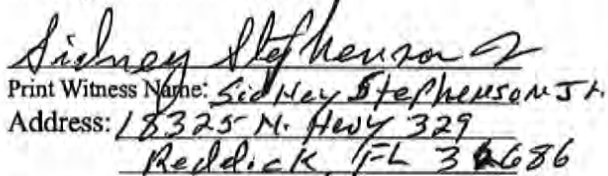 Sidney Stephenson Jr
Print Witness Name: Sidney Stephenson Jr.
Address: 18325 N. Hwy 329
Reddick, FL 32686